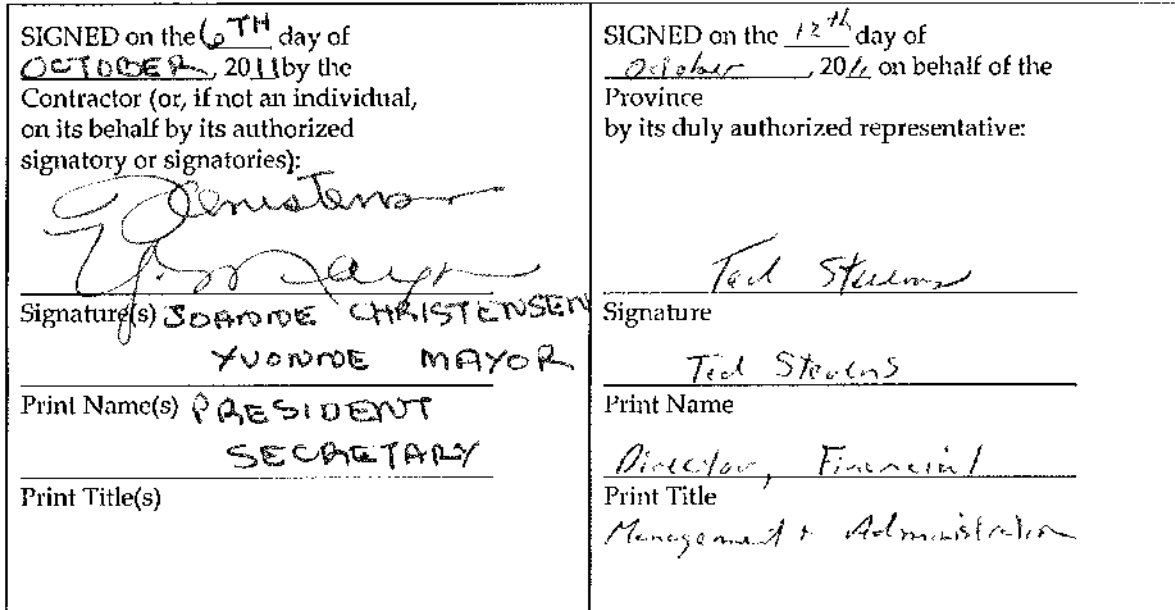 SIGNED on the 6TH day of
OCTOBER, 2011 by the
Contractor (or, if not an individual,
on its behalf by its authorized
signatory or signatories):
Signature(s) JOANNE CHRISTENSEN
YVONNE MAYOR
Print Name(s) PRESIDENT
SECRETARY
Print Title(s)
SIGNED on the 12th day of
October, 2011 on behalf of the
Province
by its duly authorized representative:
Ted Stevens
Signature
Ted Stevens
Print Name
Director, Financial
Print Title
Management + Administration